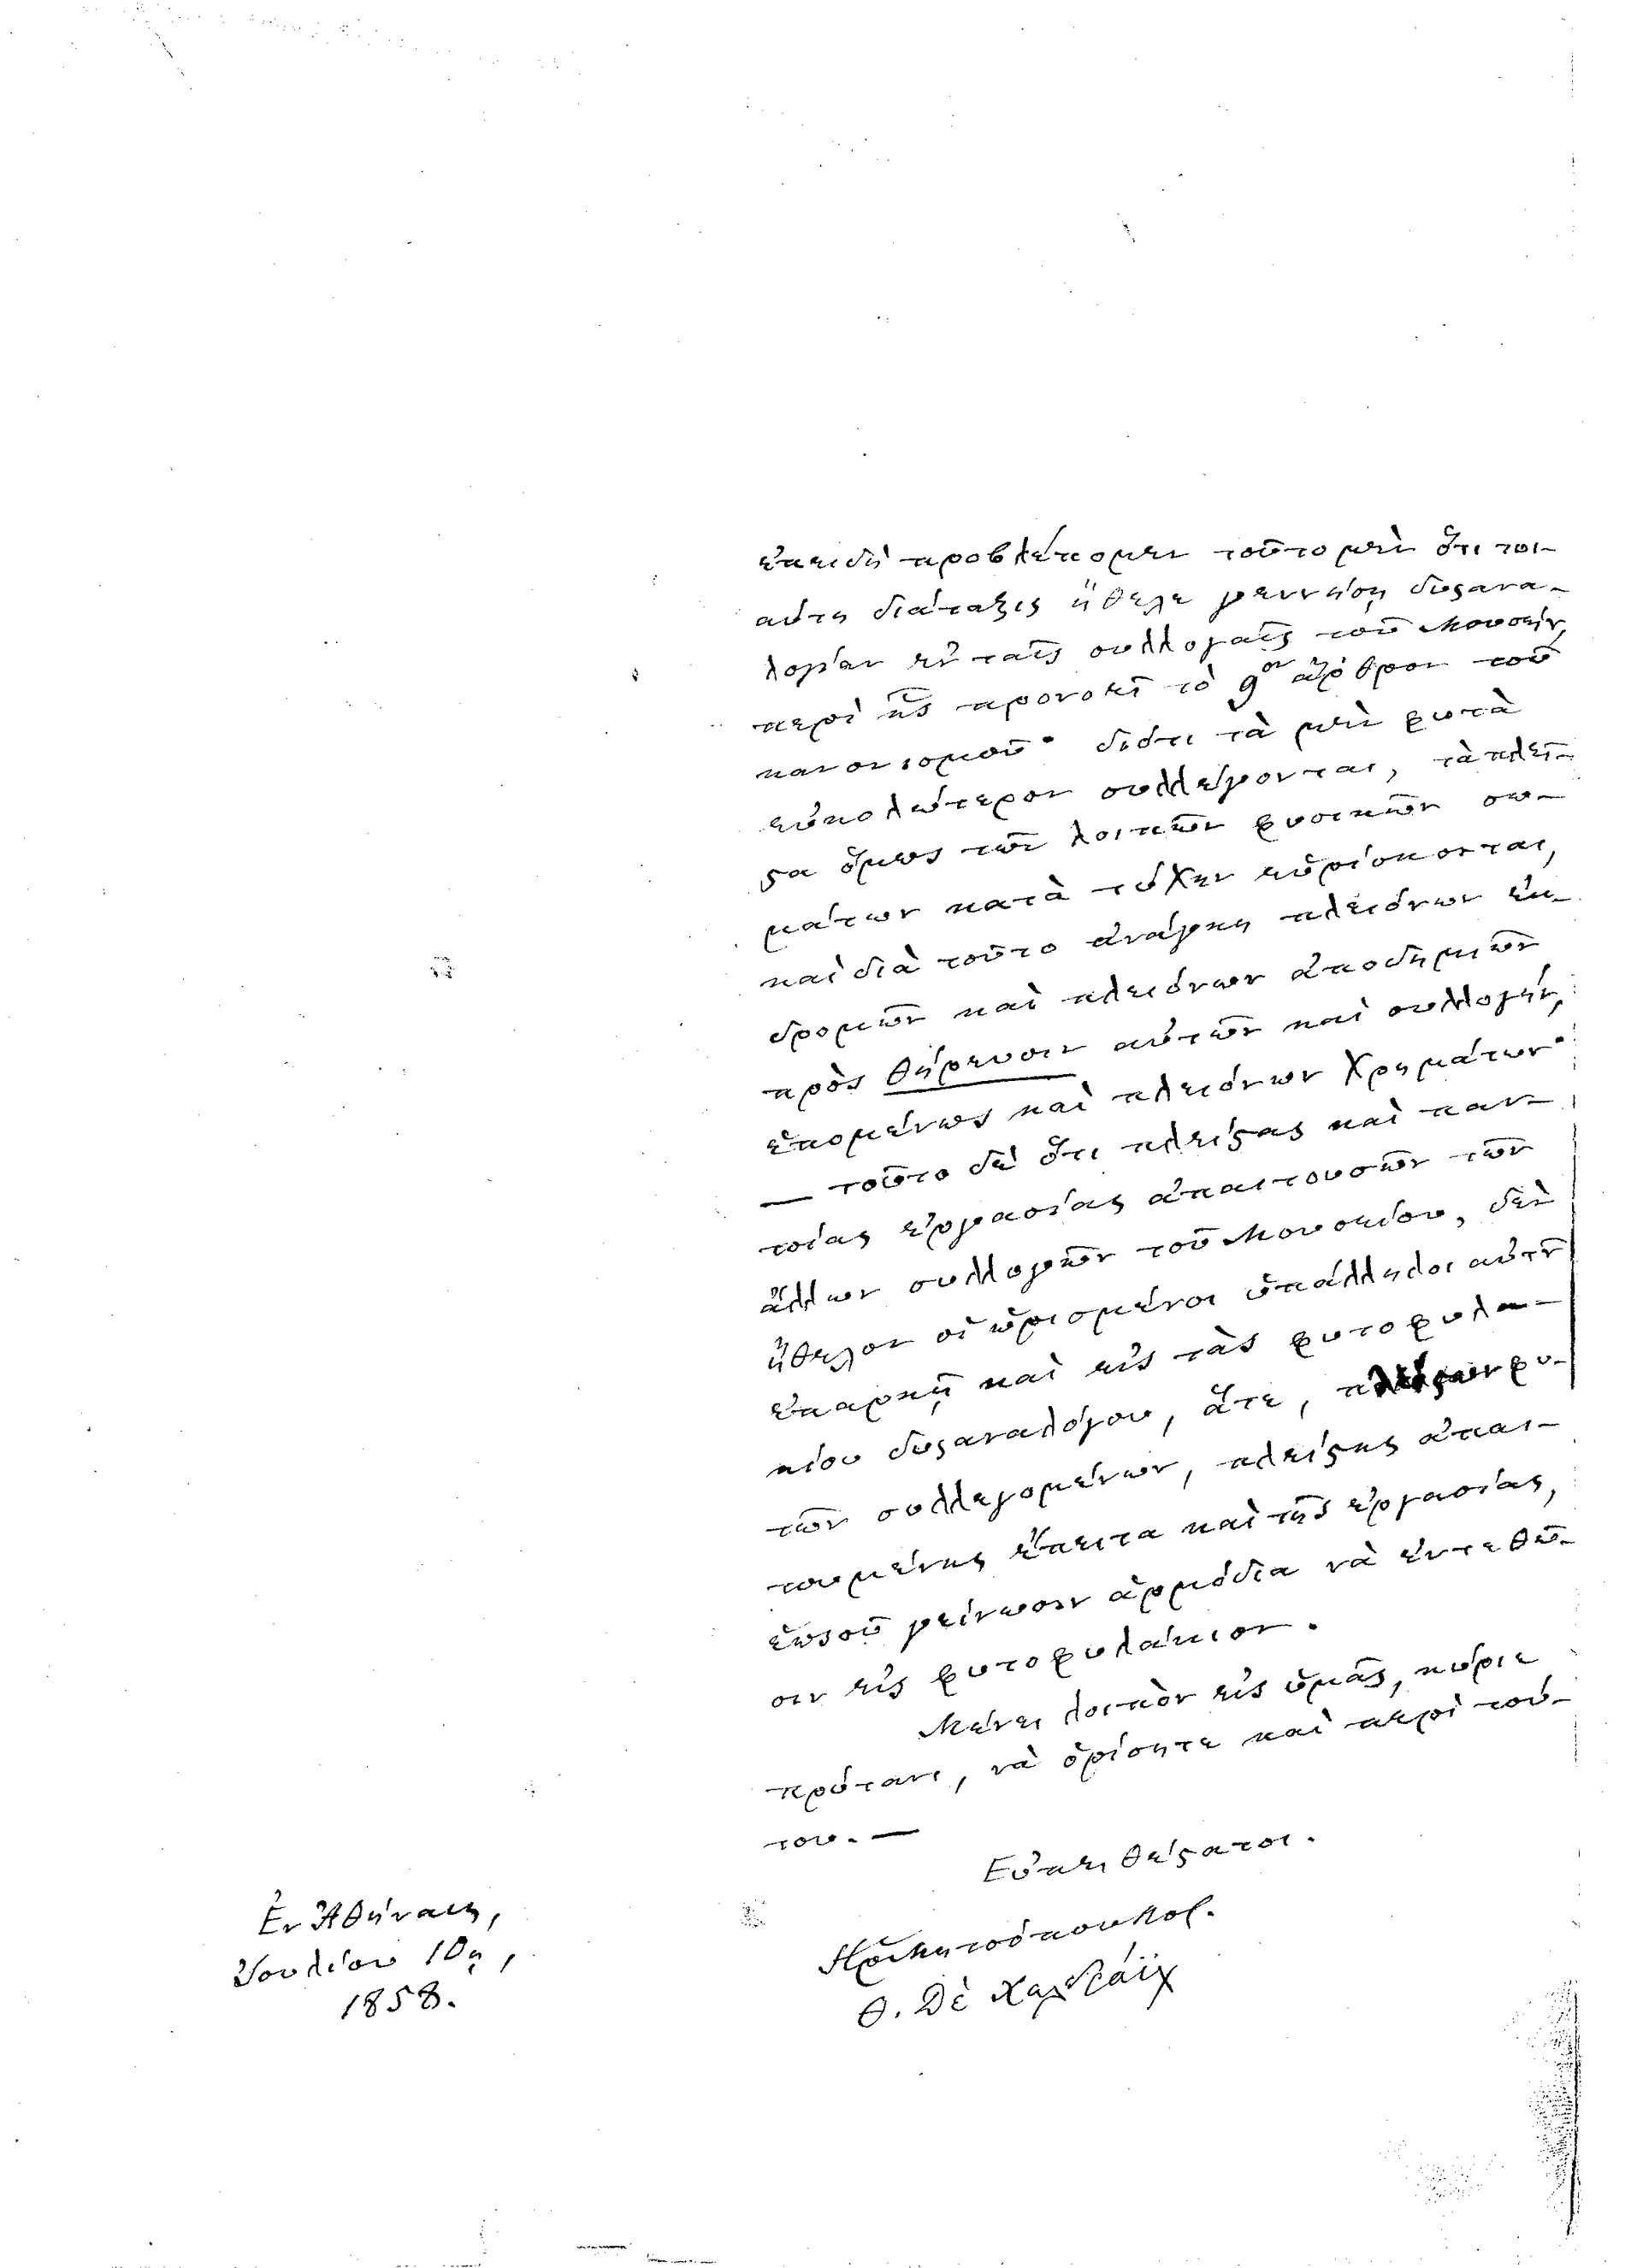 ἐπειδὴ προβλέπομεν τοῦτο μὲν ὅτι τοι-
αύτη διάταξις ἤθελε γεννήση δυςανα-
λογίαν ἐν ταῖς συλλογαῖς τοῦ Μουσείου,
περὶ ἧς προνοεῖ τὸ 9ον ἄρθρον τοῦ
κανονισμοῦ· διότι τὰ μὲν φυτὰ
εὐκολώτερον συλλέγονται, τὰ πλεῖ-
ϛα ὅμως τῶν λοιπῶν φυσικῶν σω-
μάτων κατὰ τύχην εὑρίσκονται,
καὶ διὰ τοῦτο ἀνάγκη πλειόνων ἐκ-
δρομῶν καὶ πλειόνων ἀποδημιῶν
πρὸς θήρευσιν αὐτῶν καὶ συλλογήν,
ἑπομένως καὶ πλειόνων χρημάτων·
— τοῦτο δὲ ὅτι πλείϛας καὶ παν-
τοίας ἐργασίας ἀπαιτουσῶν τῶν
ἄλλων συλλογῶν τοῦ Μουσείου, δὲν
ἤθελον οἱ ὡρισμένοι ὑπάλληλοι αὐτοῦ
ἐπαρκῇ καὶ εἰς τὰς φυτοφυλα-
κίου δυςαναλόγου, ἅτε, πλείϛων φυ-
τῶν συλλεγομένων, πλείϛης ἀπαι-
τουμένης ἔπειτα καὶ τῆς ἐργασίας,
ἑωσοῦ γείνωσιν ἁρμόδια νὰ ἐντεθῶ-
σιν εἰς φυτοφυλάκιον.
Μένει λοιπὸν εἰς ὑμᾶς, κύριε
πρύτανι, νὰ ὁρίσητε καὶ περὶ τού-
του. —
Εὐπειθέϛατοι.
Ἡρ. Μητσόπουλος.
Θ. Δὲ Χελδράϊχ
Ἐν Ἀθήναις,
Ἰουλίου 10ῃ,
1858.